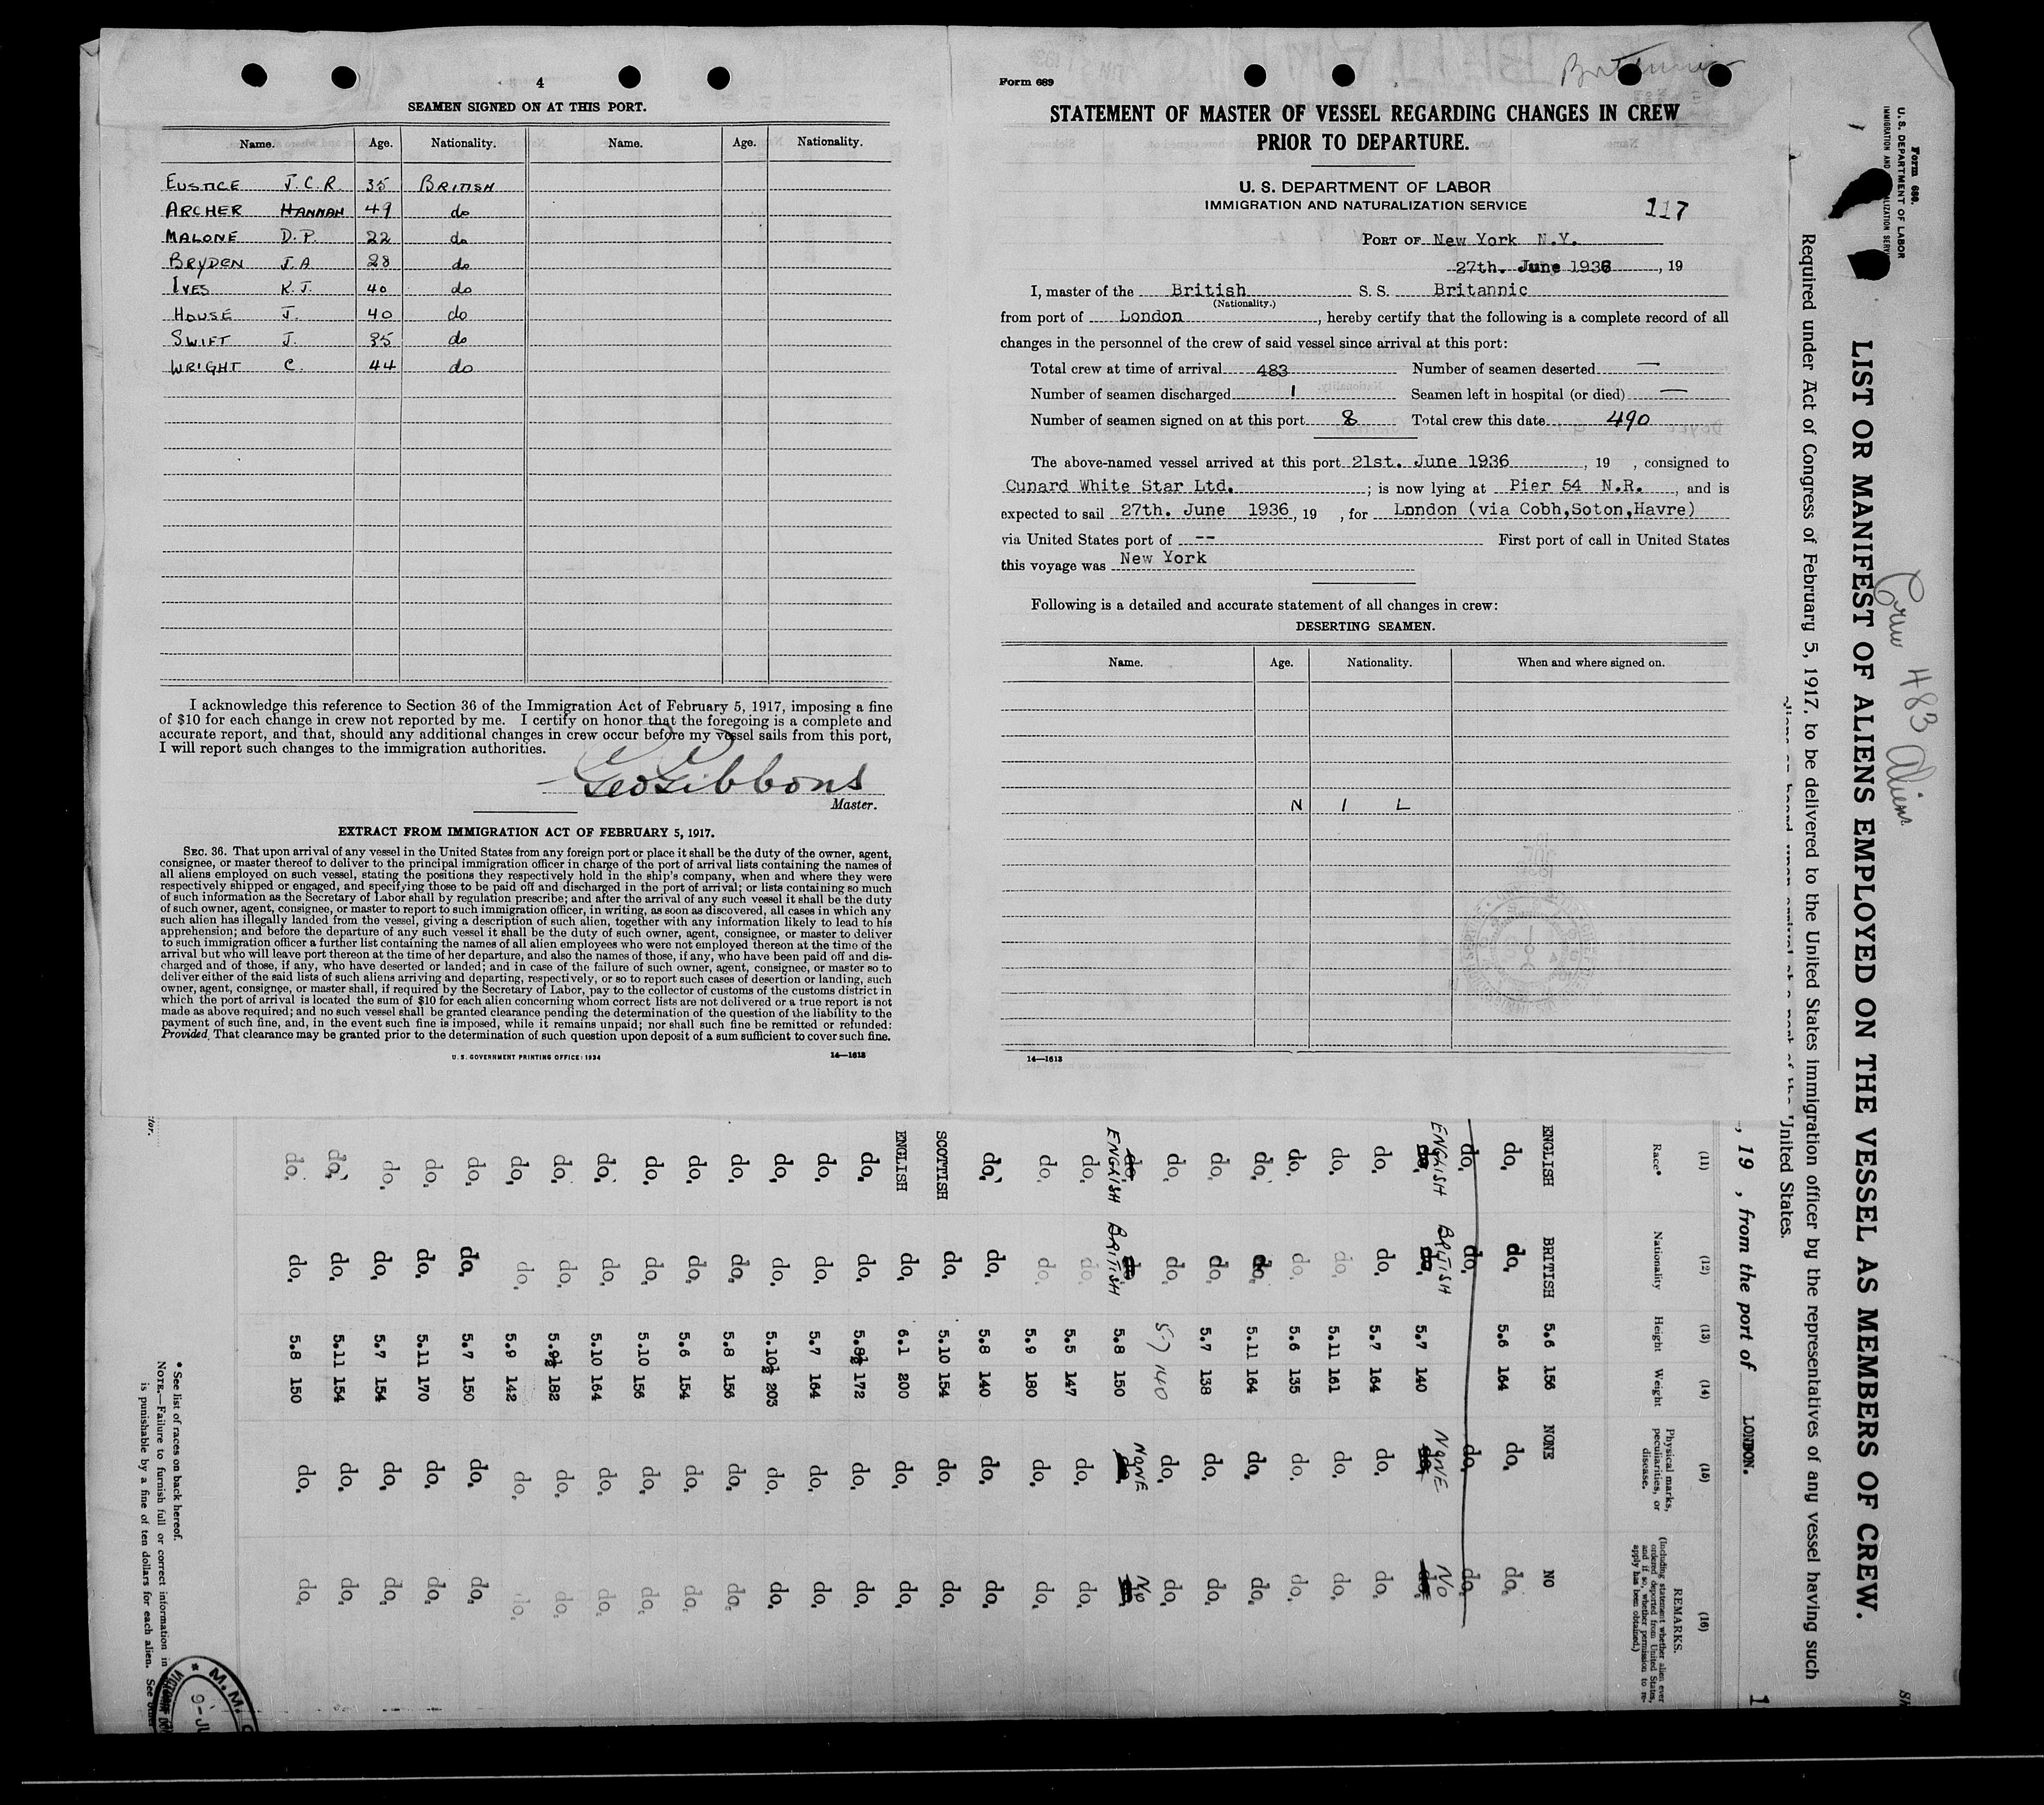 4
SEAMEN SIGNED ON AT THIS PORT.
Name. Age. Nationality. Name. Age. Nationality.
EUSTICE J.C.R. 35 BRITISH
ARCHER HANNAH 49 do
MALONE D.P. 22 do
BRYDEN J.A 28 do
IVES K.J. 40 do
HOUSE J. 40 do
SWIFT J. 35 do
WRIGHT C. 44 do
I acknowledge this reference to Section 36 of the Immigration Act of February 5, 1917, imposing a fine
of $10 for each change in crew not reported by me. I certify on honor that the foregoing is a complete and
accurate report, and that, should any additional changes in crew occur before my vessel sails from this port,
I will report such changes to the immigration authorities.
Geo Gibbons
Master.
EXTRACT FROM IMMIGRATION ACT OF FEBRUARY 5, 1917.
SEC. 36. That upon arrival of any vessel in the United States from any foreign port or place it shall be the duty of the owner, agent,
consignee, or master thereof to deliver to the principal immigration officer in charge of the port of arrival lists containing the names of
all aliens employed on such vessel, stating the positions they respectively hold in the ship's company, when and where they were
respectively shipped or engaged, and specifying those to be paid off and discharged in the port of arrival; or lists containing so much
of such information as the Secretary of Labor shall by regulation prescribe; and after the arrival of any such vessel it shall be the duty
of such owner, agent, consignee, or master to report to such immigration officer, in writing, as soon as discovered, all cases in which any
such alien has illegally landed from the vessel, giving a description of such alien, together with any information likely to lead to his
apprehension; and before the departure of any such vessel it shall be the duty of such owner, agent, consignee, or master to deliver
to such immigration officer a further list containing the names of all alien employees who were not employed thereon at the time of the
arrival but who will leave port thereon at the time of her departure, and also the names of those, if any, who have been paid off and dis-
charged and of those, if any, who have deserted or landed; and in case of the failure of such owner, agent, consignee, or master so to
deliver either of the said lists of such aliens arriving and departing, respectively, or so to report such cases of desertion or landing, such
owner, agent, consignee, or master shall, if required by the Secretary of Labor, pay to the collector of customs of the customs district in
which the port of arrival is located the sum of $10 for each alien concerning whom correct lists are not delivered or a true report is not
made as above required; and no such vessel shall be granted clearance pending the determination of the question of the liability to the
payment of such fine, and, in the event such fine is imposed, while it remains unpaid; nor shall such fine be remitted or refunded:
Provided, That clearance may be granted prior to the determination of such question upon deposit of a sum sufficient to cover such fine.
U. S. GOVERNMENT PRINTING OFFICE: 1934 14—1613
Form 689
Britannic
STATEMENT OF MASTER OF VESSEL REGARDING CHANGES IN CREW
PRIOR TO DEPARTURE.
U. S. DEPARTMENT OF LABOR
IMMIGRATION AND NATURALIZATION SERVICE
117
PORT OF New York N.Y.
27th. June 1936, 19
I, master of the British S. S. Britannic
(Nationality.)
from port of London, hereby certify that the following is a complete record of all
changes in the personnel of the crew of said vessel since arrival at this port:
Total crew at time of arrival 483 Number of seamen deserted —
Number of seamen discharged 1 Seamen left in hospital (or died) —
Number of seamen signed on at this port 8 Total crew this date 490
The above-named vessel arrived at this port 21st. June 1936, 19 , consigned to
Cunard White Star Ltd. ; is now lying at Pier 54 N.R. , and is
expected to sail 27th. June 1936, 19 , for London (via Cobh,Soton,Havre)
via United States port of -- First port of call in United States
this voyage was New York
Following is a detailed and accurate statement of all changes in crew:
DESERTING SEAMEN.
Name. Age. Nationality. When and where signed on.
N I L
14—1613
Form 680.
U. S. DEPARTMENT OF LABOR
IMMIGRATION AND
LIST OR MANIFEST OF ALIENS EMPLOYED ON THE VESSEL AS MEMBERS OF CREW.
Crew 483 Aliens
Required under Act of Congress of February 5, 1917, to be delivered to the United States immigration officer by the representatives of any vessel having such
United States.
, 19 , from the port of LONDON.
1
(11) (12) (13) (14) (15) (16)
Race* Nationality Height Weight Physical marks, peculiarities, or disease. REMARKS.
(Including statement whether alien ever ordered deported from United States, and if so, whether permission to re-apply has been obtained.)
ENGLISH BRITISH 5.6 156 NONE NO
do. do. 5.6 164 do. do.
do. do. do. do.
ENGLISH BRITISH 5.7 140 NONE NO
do. do. 5.7 164 do. do.
do. do. 5.11 161 do. do.
do. do. 5.6 135 do. do.
do. do. 5.11 164 do. do.
do. do. 5.7 138 do. do.
do. do. 5-7 140 do. do.
ENGLISH BRITISH 5.8 150 NONE No
do. do. 5.5 147 do. do.
do. do. 5.9 180 do. do.
do. do. 5.8 140 do. do.
SCOTTISH do. 5.10 154 do. do.
ENGLISH do. 6.1 200 do. do.
do. do. 5.8½ 172 do. do.
do. do. 5.7 164 do. do.
do. do. 5.10½ 203 do. do.
do. do. 5.8 156 do. do.
do. do. 5.6 154 do. do.
do. do. 5.10 156 do. do.
do. do. 5.10 164 do. do.
do. do. 5.9½ 182 do. do.
do. do. 5.9 142 do. do.
do. do. 5.7 150 do. do.
do. do. 5.11 170 do. do.
do. do. 5.7 154 do. do.
do. do. 5.11 154 do. do.
do. do. 5.8 150 do. do.
* See list of races on back hereof.
NOTE.—Failure to furnish full or correct information in
is punishable by a fine of ten dollars for each alien. See